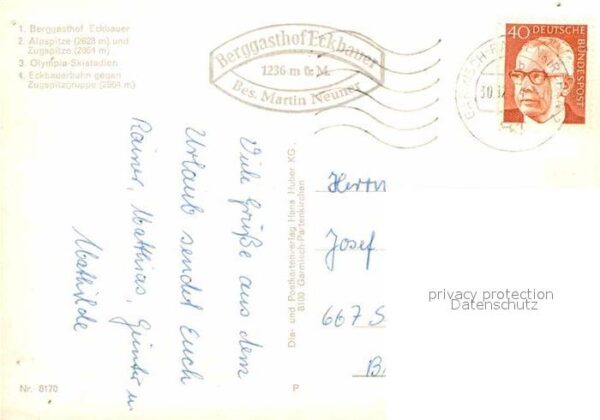 1. Berggasthof Eckbauer
2. Alpspitze (2628 m) und
Zugspitze (2964 m)
3. Olympia-Skistadion
4. Eckbauerbahn gegen
Zugspitzgruppe (2964 m)
Berggasthof Eckbauer
1236 m ü. M.
Bes. Martin Neuner
40
DEUTSCHE
BUNDESPOST
GARMISCH-PA
Viele Grüße aus dem
Urlaub sendet Euch
Rainer, Matthias, Günter u
Mathilde
Dia- und Postkartenverlag Hans Huber KG,
8100 Garmisch-Partenkirchen
Herrn
Josef
667 S
B
privacy protection
Datenschutz
Nr. 8170
P